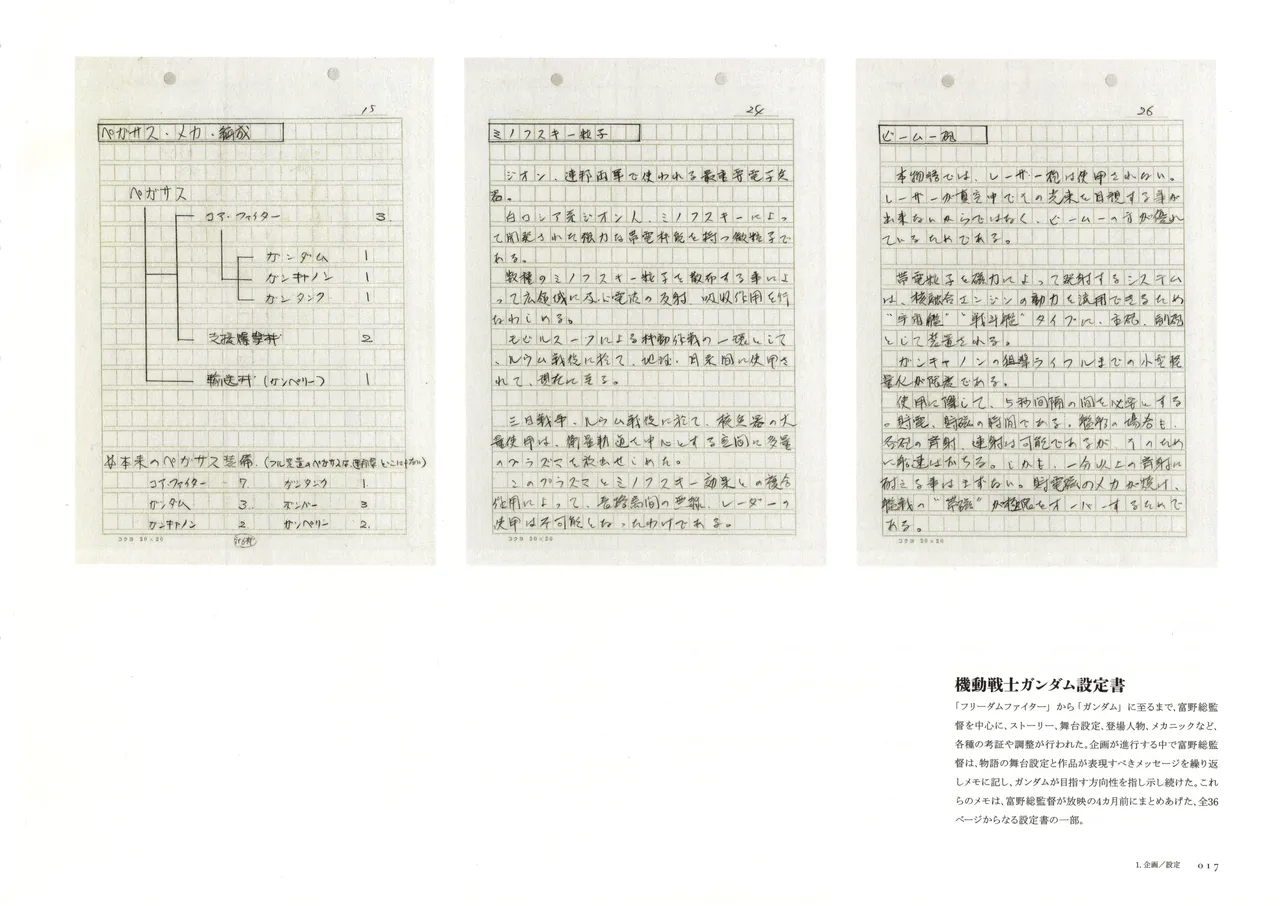 15
ペガサス・メカ・編成
ペガサス
コア・ファイター 3
ガンダム 1
ガンキャノン 1
ガンタンク 1
支援爆撃機 2
輸送機(ガンペリー) 1
本来のペガサス装備
コア・ファイター 7 ガンタンク 1
ガンダム 3 ボンバー 3
ガンキャノン 2 ガンペリー 2
コクヨ 20×20
24
ミノフスキー粒子
ジオン、連邦両軍で使われる最重要電子兵
器。
白ロシア系ジオン人、ミノフスキーによっ
て開発された強力な帯電機能を持つ微粒子で
ある。
数種のミノフスキー粒子を散布する事によ
って広領域に及ぶ電波の反射、吸収作用を行
なわしめる。
モビルスーツによる機動作戦の一環として
、ルウム戦役に於て、地球・月軌間に使用さ
れて、現在に至る。
三日戦争、ルウム戦役に於て、核兵器の大
量使用は、衛星軌道を中心とする空間に多量
のプラズマを放出せしめた。
このプラズマとミノフスキー効果との複合
作用によって、長距離間の無線、レーダーの
使用は不可能となったわけである。
コクヨ 20×20
26
ビーム砲
本物語では、レーザー砲は使用されない。
レーザーが真空中でその光束を目視する事が
出来ないからではなく、ビームの方が優れ
ているためである。
帯電粒子を磁力によって発射するシステム
は、核融合エンジンの動力を流用できるため
"宇宙艦" "戦斗艦" タイプに、主砲、副砲
として装置される。
ガンキャノンの狙撃ライフルまでの小型軽
量化が限度である。
使用に際して、5秒間隔の間を必要とする
。貯電、貯磁の時間である。艦砲の場合も、
各砲の斉射、連射は可能であるが、そのため
に船速はおちる。しかも、一分以上の斉射に
耐える事はまずない。射電磁のメカが焼け、
艦載の "帯磁" が極限をオーバーするためで
ある。
コクヨ 20×20
機動戦士ガンダム設定書
「フリーダムファイター」から「ガンダム」に至るまで、富野総監
督を中心に、ストーリー、舞台設定、登場人物、メカニックなど、
各種の考証や調整が行われた。企画が進行する中で富野総監
督は、物語の舞台設定と作品が表現すべきメッセージを繰り返
しメモに記し、ガンダムが目指す方向性を指し示し続けた。これ
らのメモは、富野総監督が放映の4カ月前にまとめあげた、全36
ページからなる設定書の一部。
1. 企画/設定 017